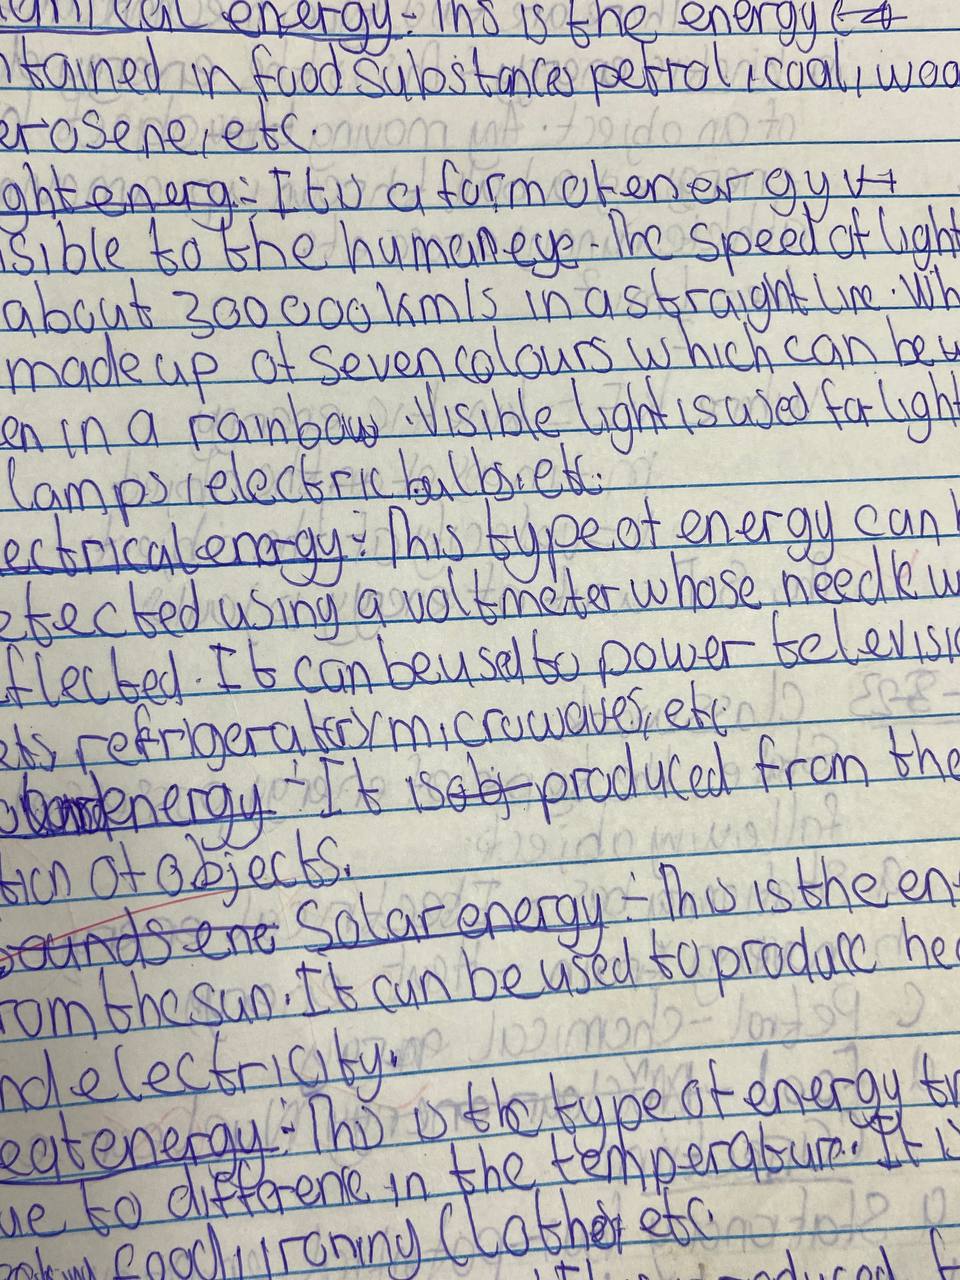 emical energy:- This is the energy
ntained in food substances petrol, coal, woo
erosene, etc.
ght energ:- It is a form of energy
isible to the human eye. The speed of light
about 300 000 km/s in a straight line. Wh
made up of seven colours which can be
en in a rainbow. Visible light is used for light
lamps, electric bulbs, etc.
ectrical energy:- This type of energy can
etected using a voltmeter whose needle w
flected. It can be used to power televisi
ets, refrigerators, microwaves, etc
energy:- It is produced from the
tion of objects.
ounds ene Solar energy:- This is the en
rom the sun. It can be used to produce hea
nd electricity.
eat energy:- This is the type of energy tr
ue to difference in the temperature. It is
food, ironing clothes etc